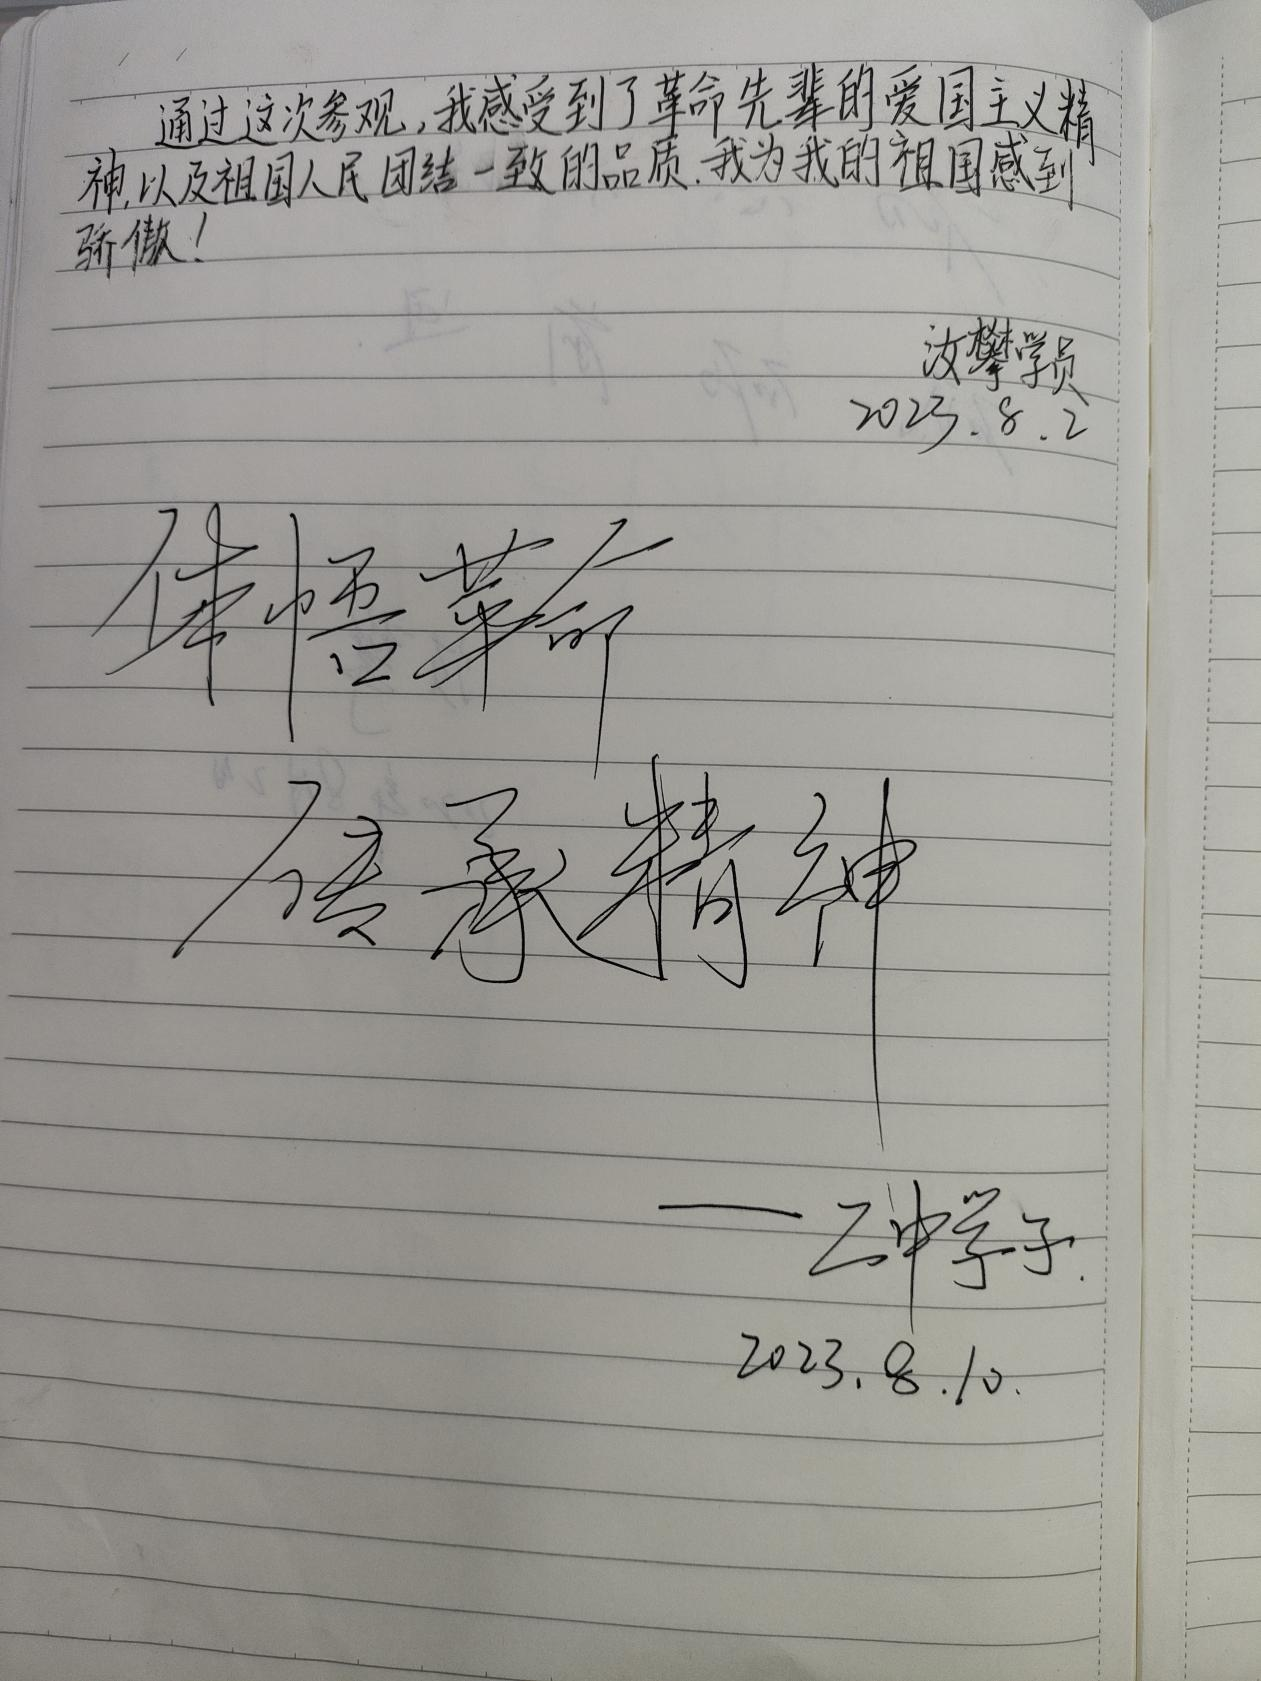 通过这次参观，我感受到了革命先辈的爱国主义精
神，以及祖国人民团结一致的品质．我为我的祖国感到
骄傲！
汝攀学员
2023.8.2
体悟革命
传承精神
——乙中学子.
2023.8.10.